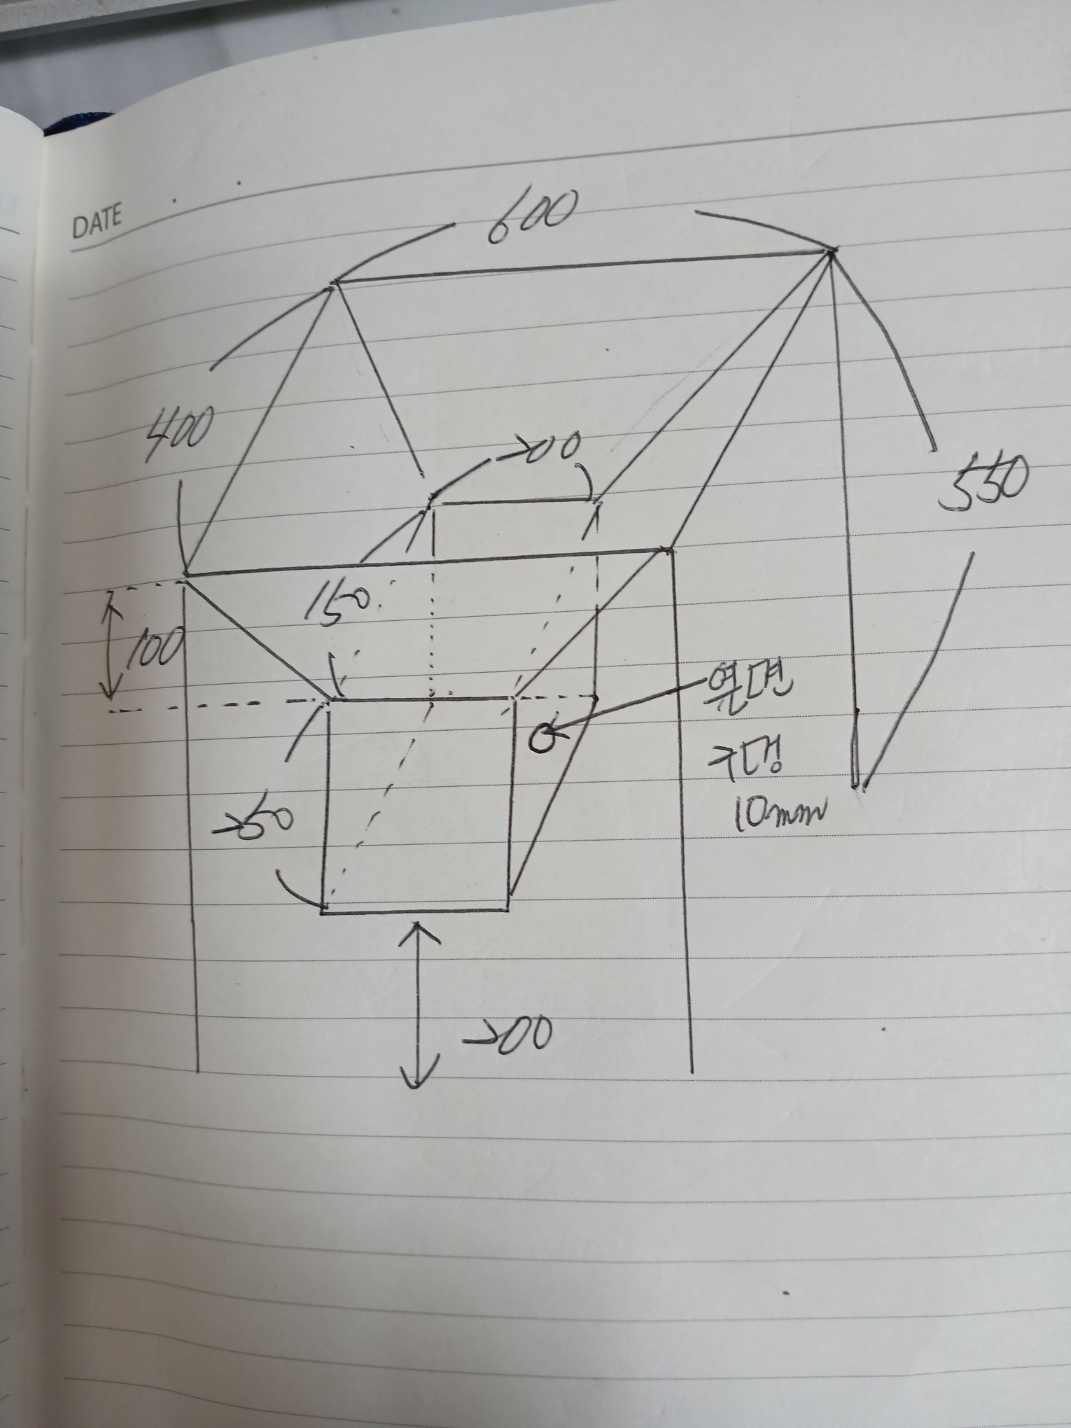 DATE
600
400
200
550
150
100
옆면
구멍
10mm
250
200